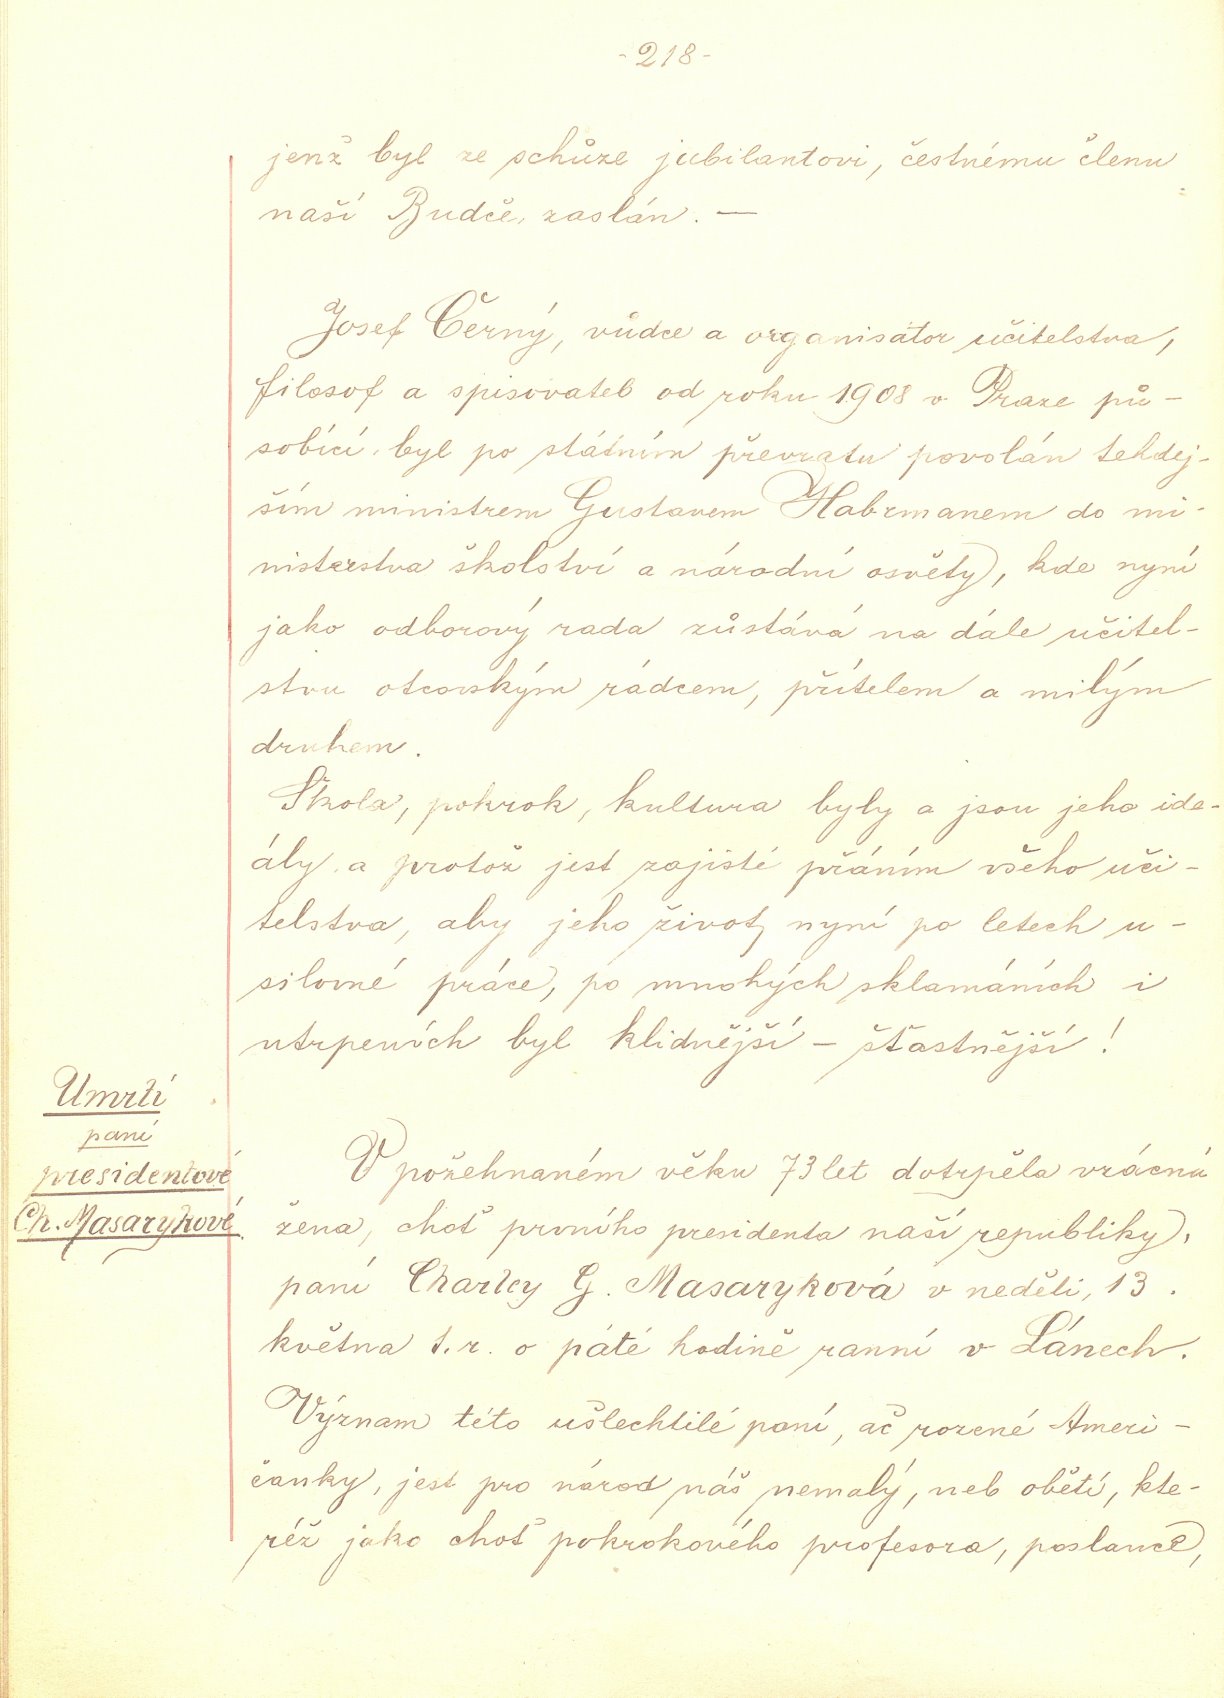 -218-
jenž byl ze schůze jubilantovi, čestnému členu
naší Budče, zaslán. —
Josef Černý, vůdce a organisátor učitelstva,
filosof a spisovatel od roku 1908 v Praze pů-
sobící, byl po státním převratu povolán tehdej-
ším ministrem Gustavem Habrmanem do mi-
nisterstva školství a národní osvěty, kde nyní
jako odborový rada zůstává na dále učitel-
stvu otcovským rádcem, přítelem a milým
druhem.
Škola, pokrok, kultura byly a jsou jeho ide-
ály, a protož jest zajisté přáním všeho uči-
telstva, aby jeho život, nyní po letech u-
silovné práce, po mnohých sklamáních i
utrpeních byl klidnější – šťastnější!
Úmrtí
paní
presidentové
Ch. Masarykové.
V požehnaném věku 73 let dotrpěla vzácná
žena, choť prvního presidenta naší republiky,
paní Charley G. Masaryková v neděli, 13.
května t. r. o páté hodině ranní v Lánech.
Význam této ušlechtilé paní, ač rozené Ameri-
čanky, jest pro národ náš nemalý, neb oběti, kte-
réž jako choť pokrokového profesora, poslance,